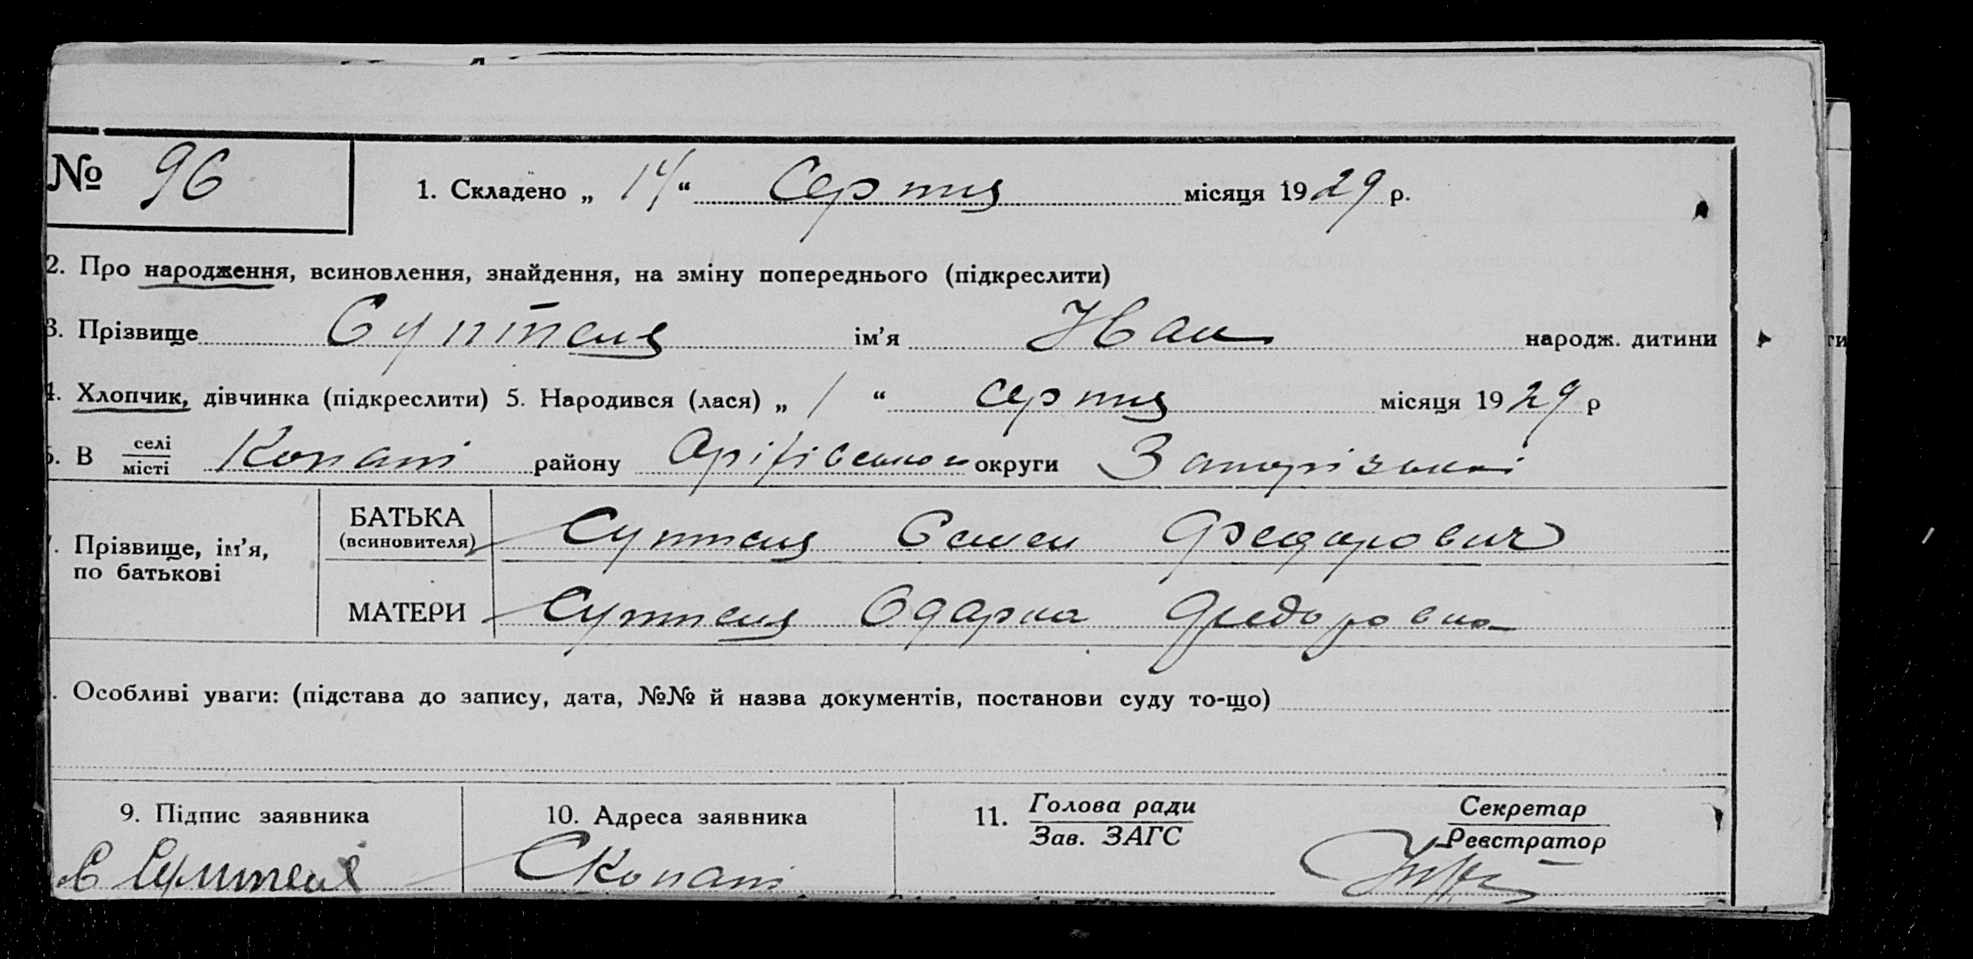 № 96
1. Складено „ 14 “ Серпня місяця 1929 р.
2. Про народження, всиновлення, знайдення, на зміну попереднього (підкреслити)
3. Прізвище Суптеля ім’я Іван народж. дитини
4. Хлопчик, дівчинка (підкреслити) 5. Народився (лася) „ 1 “ серпня місяця 1929 р
6. В селі/місті Копані району Оріхівського округи Запорізької
7. Прізвище, ім’я, по батькові
БАТЬКА (всиновителя) Суптеля Семен Федорович
МАТЕРИ Суптеля Одарка Федоровна
. Особливі уваги: (підстава до запису, дата, №№ й назва документів, постанови суду то-що)
9. Підпис заявника
10. Адреса заявника
11. Голова ради / Зав. ЗАГС
Секретар / Реєстратор
С Суптеля
С Копані